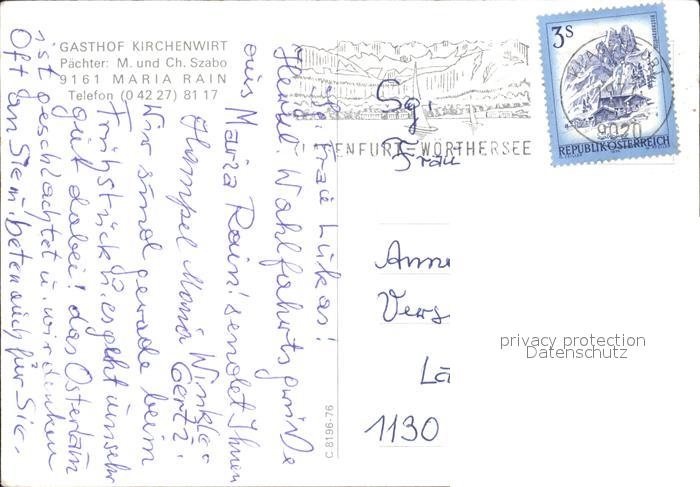 GASTHOF KIRCHENWIRT
Pächter: M. und Ch. Szabo
9161 MARIA RAIN
Telefon (0 42 27) 81 17
Frau Lukas!
Herzl. Wahlfahrtsgrüße
aus Maria Rain! sendet Ihnen
Maria Winkler
Wir sind gerade beim
Frühstück u. es geht uns sehr
gut dabei! das Osterlam
ist geschlachtet u. wir denken
Oft an Sie u. beten auch für Sie.
C 8196-76
KLAGENFURT-WÖRTHERSEE
9020
3S
REPUBLIK ÖSTERREICH
Frau
Anne
Vers
1130
privacy protection
Datenschutz